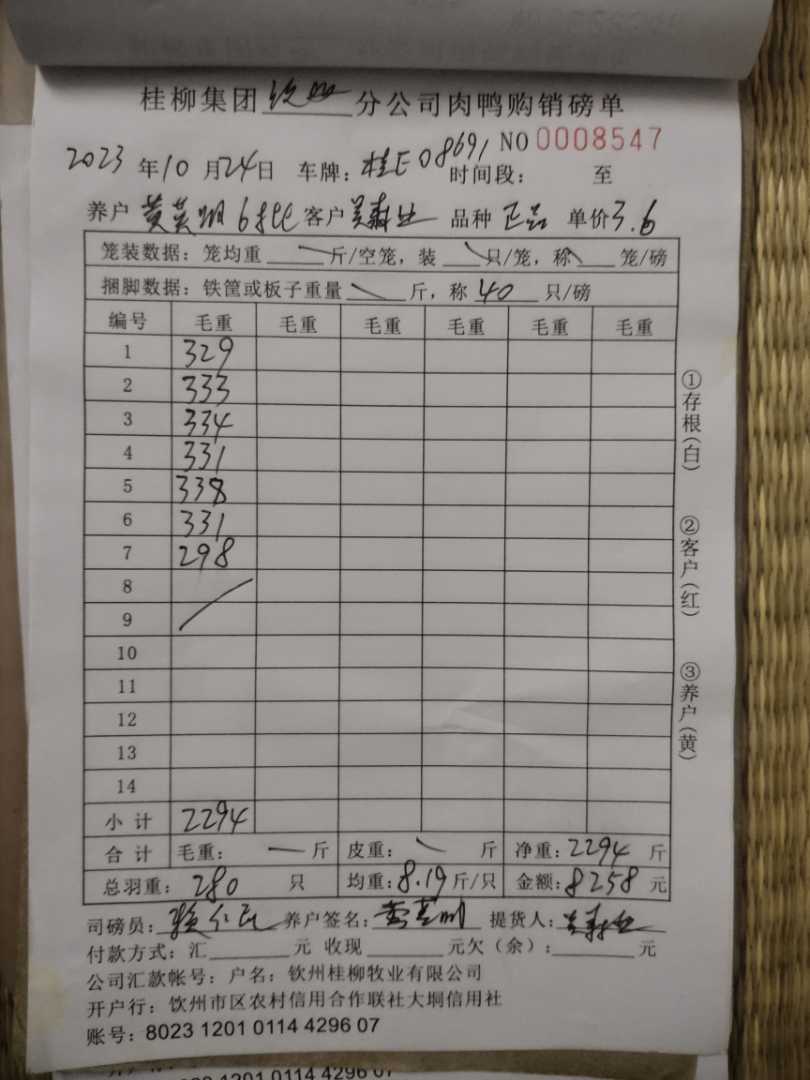 桂柳集团钦州分公司肉鸭购销磅单
NO 0008547
2023年10月24日 车牌：桂E08691 时间段： 至
养户 黄英明 6批 客户 吴森业 品种 正品 单价3.6
笼装数据：笼均重 斤/空笼，装 只/笼，称 笼/磅
捆脚数据：铁筐或板子重量 斤，称 40 只/磅
编号 毛重 毛重 毛重 毛重 毛重 毛重
1 329
2 333
3 334
4 331
5 338
6 331
7 298
8
9
10
11
12
13
14
小计 2294
合计 毛重：一斤 皮重： 斤 净重：2294 斤
总羽重：280 只 均重：8.19斤/只 金额：8258 元
司磅员： 养户签名：黄英明 提货人：吴森业
付款方式：汇 元 收现 元欠（余）： 元
公司汇款帐号：户名：钦州桂柳牧业有限公司
开户行：钦州市区农村信用合作联社大垌信用社
账号：8023 1201 0114 4296 07
①存根（白）
②客户（红）
③养户（黄）